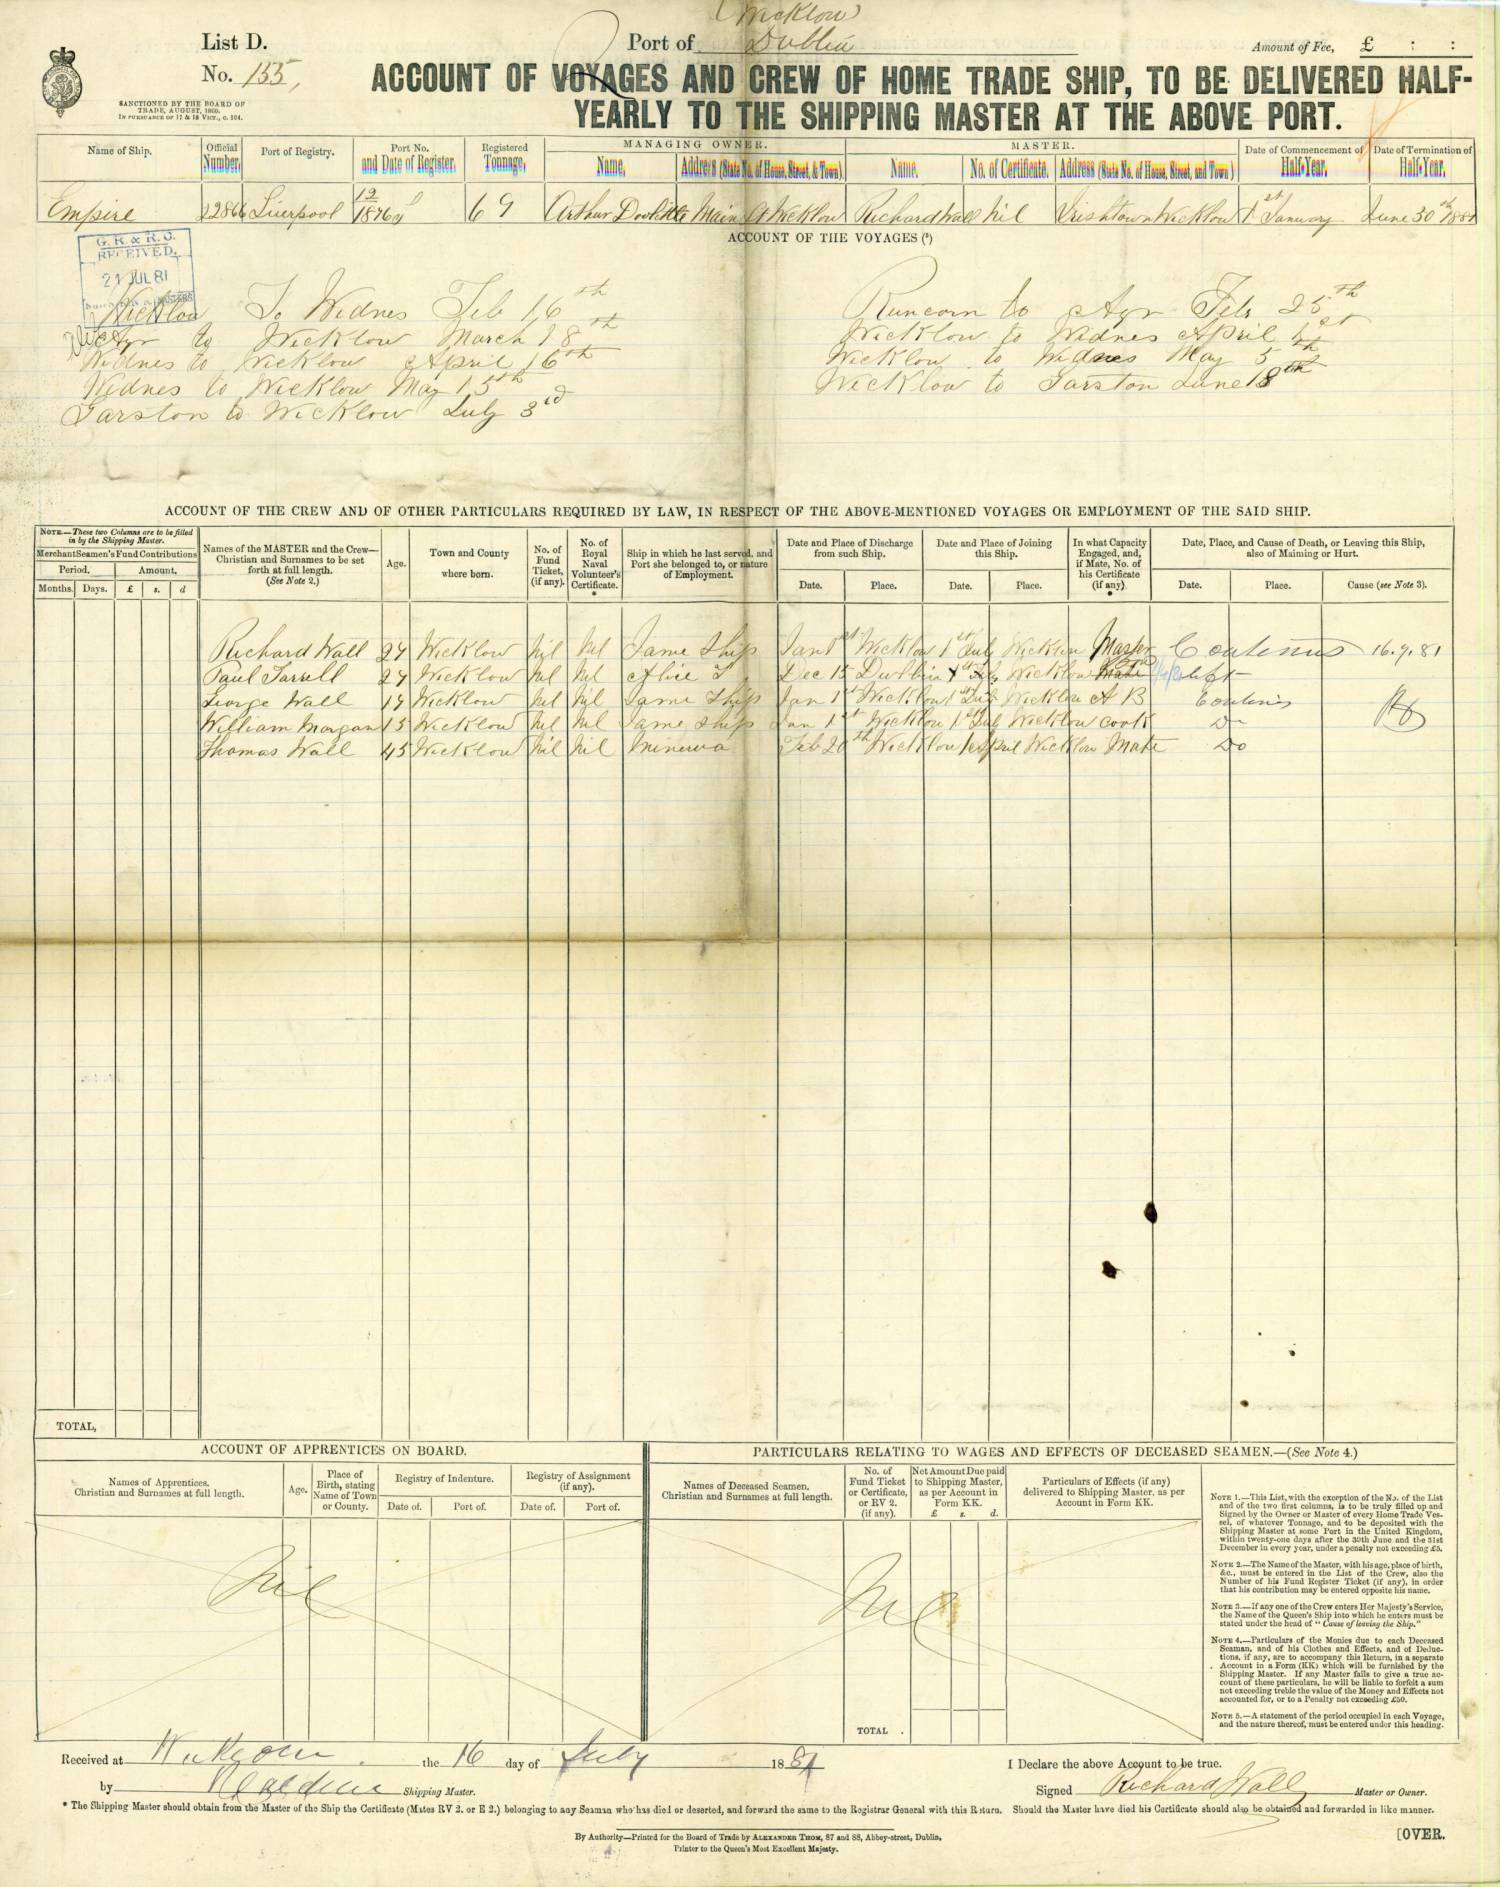 (Wicklow)
List D. Port of Dublin Amount of Fee, £ : :
No. 155,
SANCTIONED BY THE BOARD OF
TRADE, AUGUST, 1860.
IN PURSUANCE OF 17 & 18 VICT., c. 104.
ACCOUNT OF VOYAGES AND CREW OF HOME TRADE SHIP, TO BE DELIVERED HALF-
YEARLY TO THE SHIPPING MASTER AT THE ABOVE PORT.
MANAGING OWNER. MASTER.
Name of Ship. Official Number. Port of Registry. Port No. and Date of Register. Registered Tonnage. Name. Address (State No. of House, Street, & Town). Name. No. of Certificate. Address (State No. of House, Street, and Town) Date of Commencement of Half-Year. Date of Termination of Half-Year.
Empire 22866 Liverpool 12/1876 69 Arthur Doolittle Main St Wicklow Richard Wall Nil Irishtown Wicklow 1st January June 30th 1881
G. R. & R. O.
RECEIVED.
21 JUL 81
ACCOUNT OF THE VOYAGES (5)
Wicklow To Widnes Feb 16th Runcorn to Ayr Feb 25th
Ayr to Wicklow March 18th Wicklow to Widnes April 1st
Widnes to Wicklow April 16th Wicklow to Widnes May 5th
Widnes to Wicklow May 15th Wicklow to Garston June 18th
Garston to Wicklow July 3rd
ACCOUNT OF THE CREW AND OF OTHER PARTICULARS REQUIRED BY LAW, IN RESPECT OF THE ABOVE-MENTIONED VOYAGES OR EMPLOYMENT OF THE SAID SHIP.
NOTE.—These two Columns are to be filled in by the Shipping Master.
Merchant Seamen's Fund Contributions
Period. Amount.
Months. Days. £ s. d
Names of the MASTER and the Crew—Christian and Surnames to be set forth at full length. (See Note 2.)
Age.
Town and County where born.
No. of Fund Ticket, (if any).
No. of Royal Naval Volunteer's Certificate. *
Ship in which he last served, and Port she belonged to, or nature of Employment.
Date and Place of Discharge from such Ship. Date. Place.
Date and Place of Joining this Ship. Date. Place.
In what Capacity Engaged, and, if Mate, No. of his Certificate (if any). *
Date, Place, and Cause of Death, or Leaving this Ship, also of Maiming or Hurt.
Date. Place. Cause (see Note 3).
Richard Wall 24 Wicklow Nil Nil Same Ship Jan 1st Wicklow 1st July Wicklow Master Continues 16.7.81
Paul Farrell 24 Wicklow Nil Nil Alice Dec 15 Dublin Wicklow Mate left
George Wall 19 Wicklow Nil Nil Same Ship Jan 1st Wicklow 1st July Wicklow A B Continues
William Morgan 15 Wicklow Nil Nil Same Ship Jan 1st Wicklow 1st Jul Wicklow Cook Do
Thomas Wall 45 Wicklow Nil Nil Minerva Feb 20th Wicklow 1 April Wicklow Mate Do
TOTAL,
ACCOUNT OF APPRENTICES ON BOARD.
Names of Apprentices. Christian and Surnames at full length. Age. Place of Birth, stating Name of Town or County. Registry of Indenture. Registry of Assignment (if any).
Date of. Port of. Date of. Port of.
Nil
PARTICULARS RELATING TO WAGES AND EFFECTS OF DECEASED SEAMEN.—(See Note 4.)
Names of Deceased Seamen, Christian and Surnames at full length. No. of Fund Ticket or Certificate, or RV 2. (if any). Net Amount Due paid to Shipping Master, as per Account in Form KK. £ s. d. Particulars of Effects (if any) delivered to Shipping Master, as per Account in Form KK.
Nil
TOTAL .
NOTE 1.—This List, with the exception of the No. of the List
and of the two first columns, is to be truly filled up and
Signed by the Owner or Master of every Home Trade Ves-
sel, of whatever Tonnage, and to be deposited with the
Shipping Master at some Port in the United Kingdom,
within twenty-one days after the 30th June and the 31st
December in every year, under a penalty not exceeding £5.
NOTE 2.—The Name of the Master, with his age, place of birth,
&c., must be entered in the List of the Crew, also the
Number of his Fund Register Ticket (if any), in order
that his contribution may be entered opposite his name.
NOTE 3.—If any one of the Crew enters Her Majesty's Service,
the Name of the Queen's Ship into which he enters must be
stated under the head of "Cause of leaving the Ship."
NOTE 4.—Particulars of the Monies due to each Deceased
Seaman, and of his Clothes and Effects, and of Deduc-
tions, if any, are to accompany this Return, in a separate
Account in a Form (KK) which will be furnished by the
Shipping Master. If any Master fails to give a true ac-
count of these particulars, he will be liable to forfeit a sum
not exceeding treble the value of the Money and Effects not
accounted for, or to a Penalty not exceeding £50.
NOTE 5.—A statement of the period occupied in each Voyage,
and the nature thereof, must be entered under this heading.
Received at Wicklow the 16 day of July 1881 I Declare the above Account to be true.
by Shipping Master. Signed Richard Wall Master or Owner.
* The Shipping Master should obtain from the Master of the Ship the Certificate (Mates RV 2. or E 2.) belonging to any Seaman who has died or deserted, and forward the same to the Registrar General with this Return. Should the Master have died his Certificate should also be obtained and forwarded in like manner.
By Authority—Printed for the Board of Trade by ALEXANDER THOM, 87 and 88, Abbey-street, Dublin,
Printer to the Queen's Most Excellent Majesty.
[OVER.